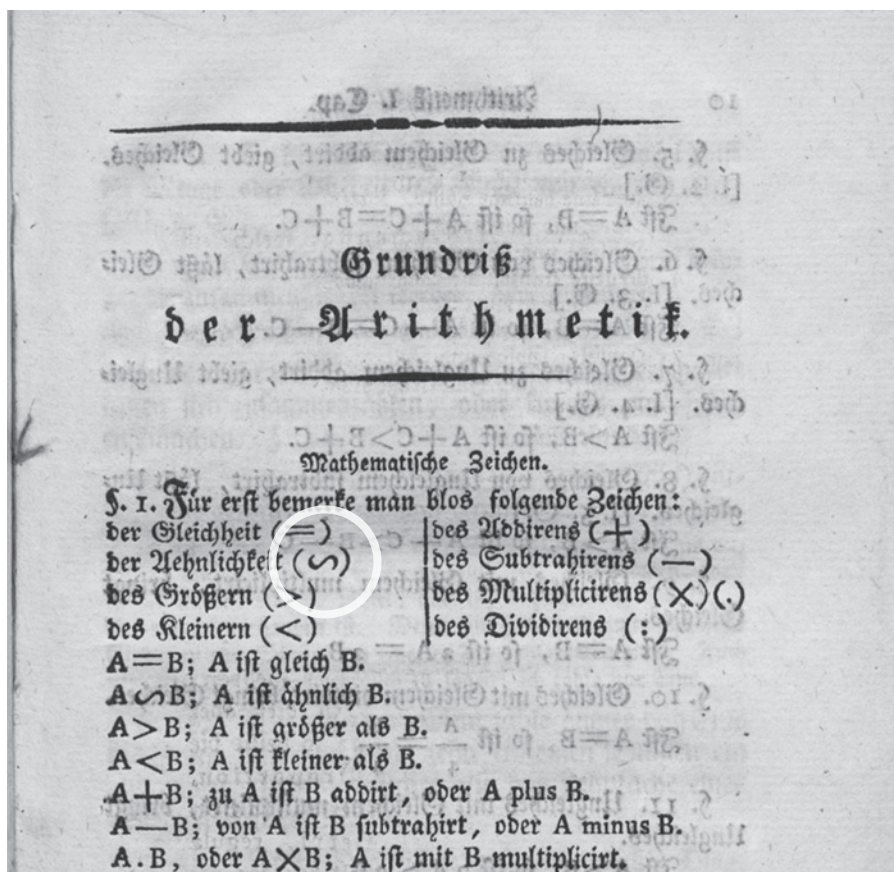 Grundriß
der Arithmetik.
Mathematische Zeichen.
§. 1. Für erst bemerke man blos folgende Zeichen:
der Gleichheit (=) des Addirens (+)
der Aehnlichkeit (∽) des Subtrahirens (—)
des Größern (>) des Multiplicirens (×)(.)
des Kleinern (<) des Dividirens (:)
A=B; A ist gleich B.
A∽B; A ist ähnlich B.
A>B; A ist größer als B.
A<B; A ist kleiner als B.
A+B; zu A ist B addirt, oder A plus B.
A—B; von A ist B subtrahirt, oder A minus B.
A.B, oder A×B; A ist mit B multiplicirt.